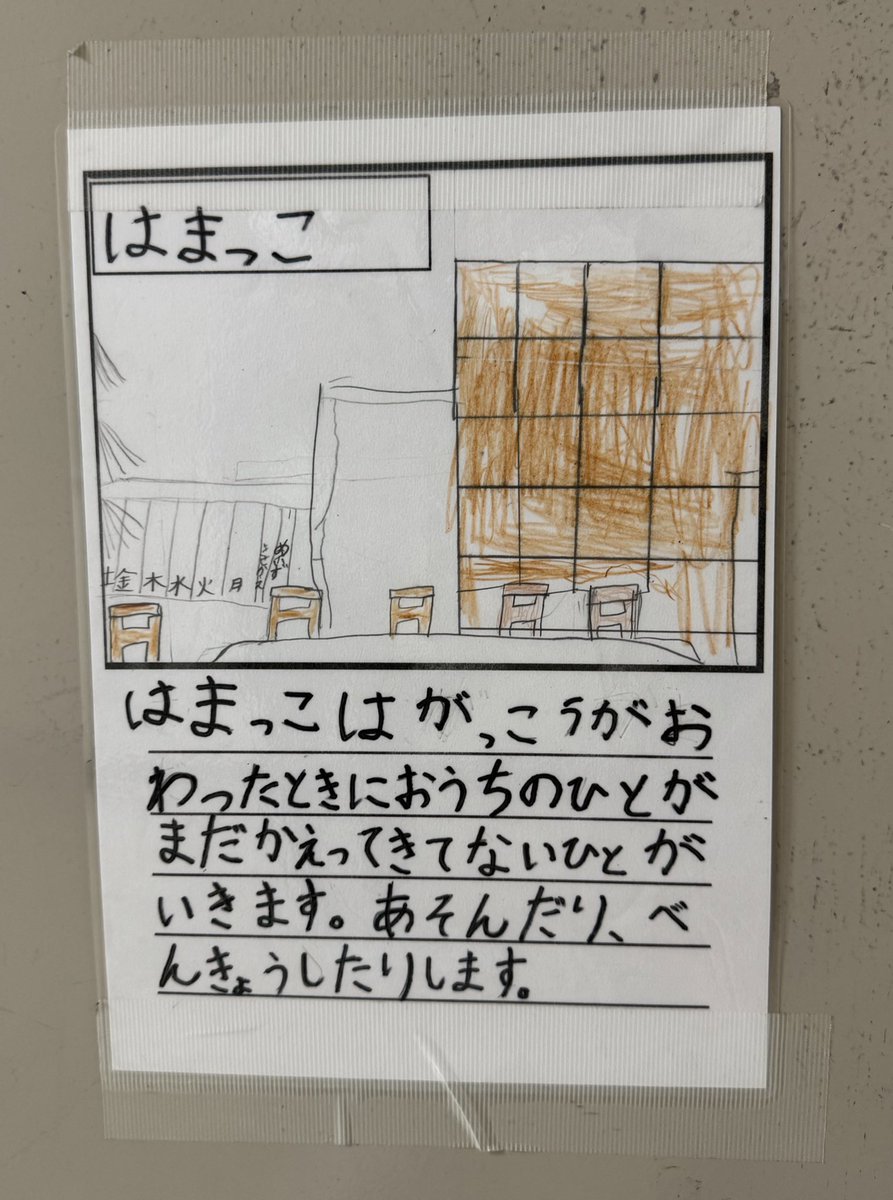 はまっこ
土金木水火月
はまっこはがっこうがお
わったときにおうちのひとが
まだかえってきてないひとが
いきます。あそんだり、べ
んきょうしたりします。